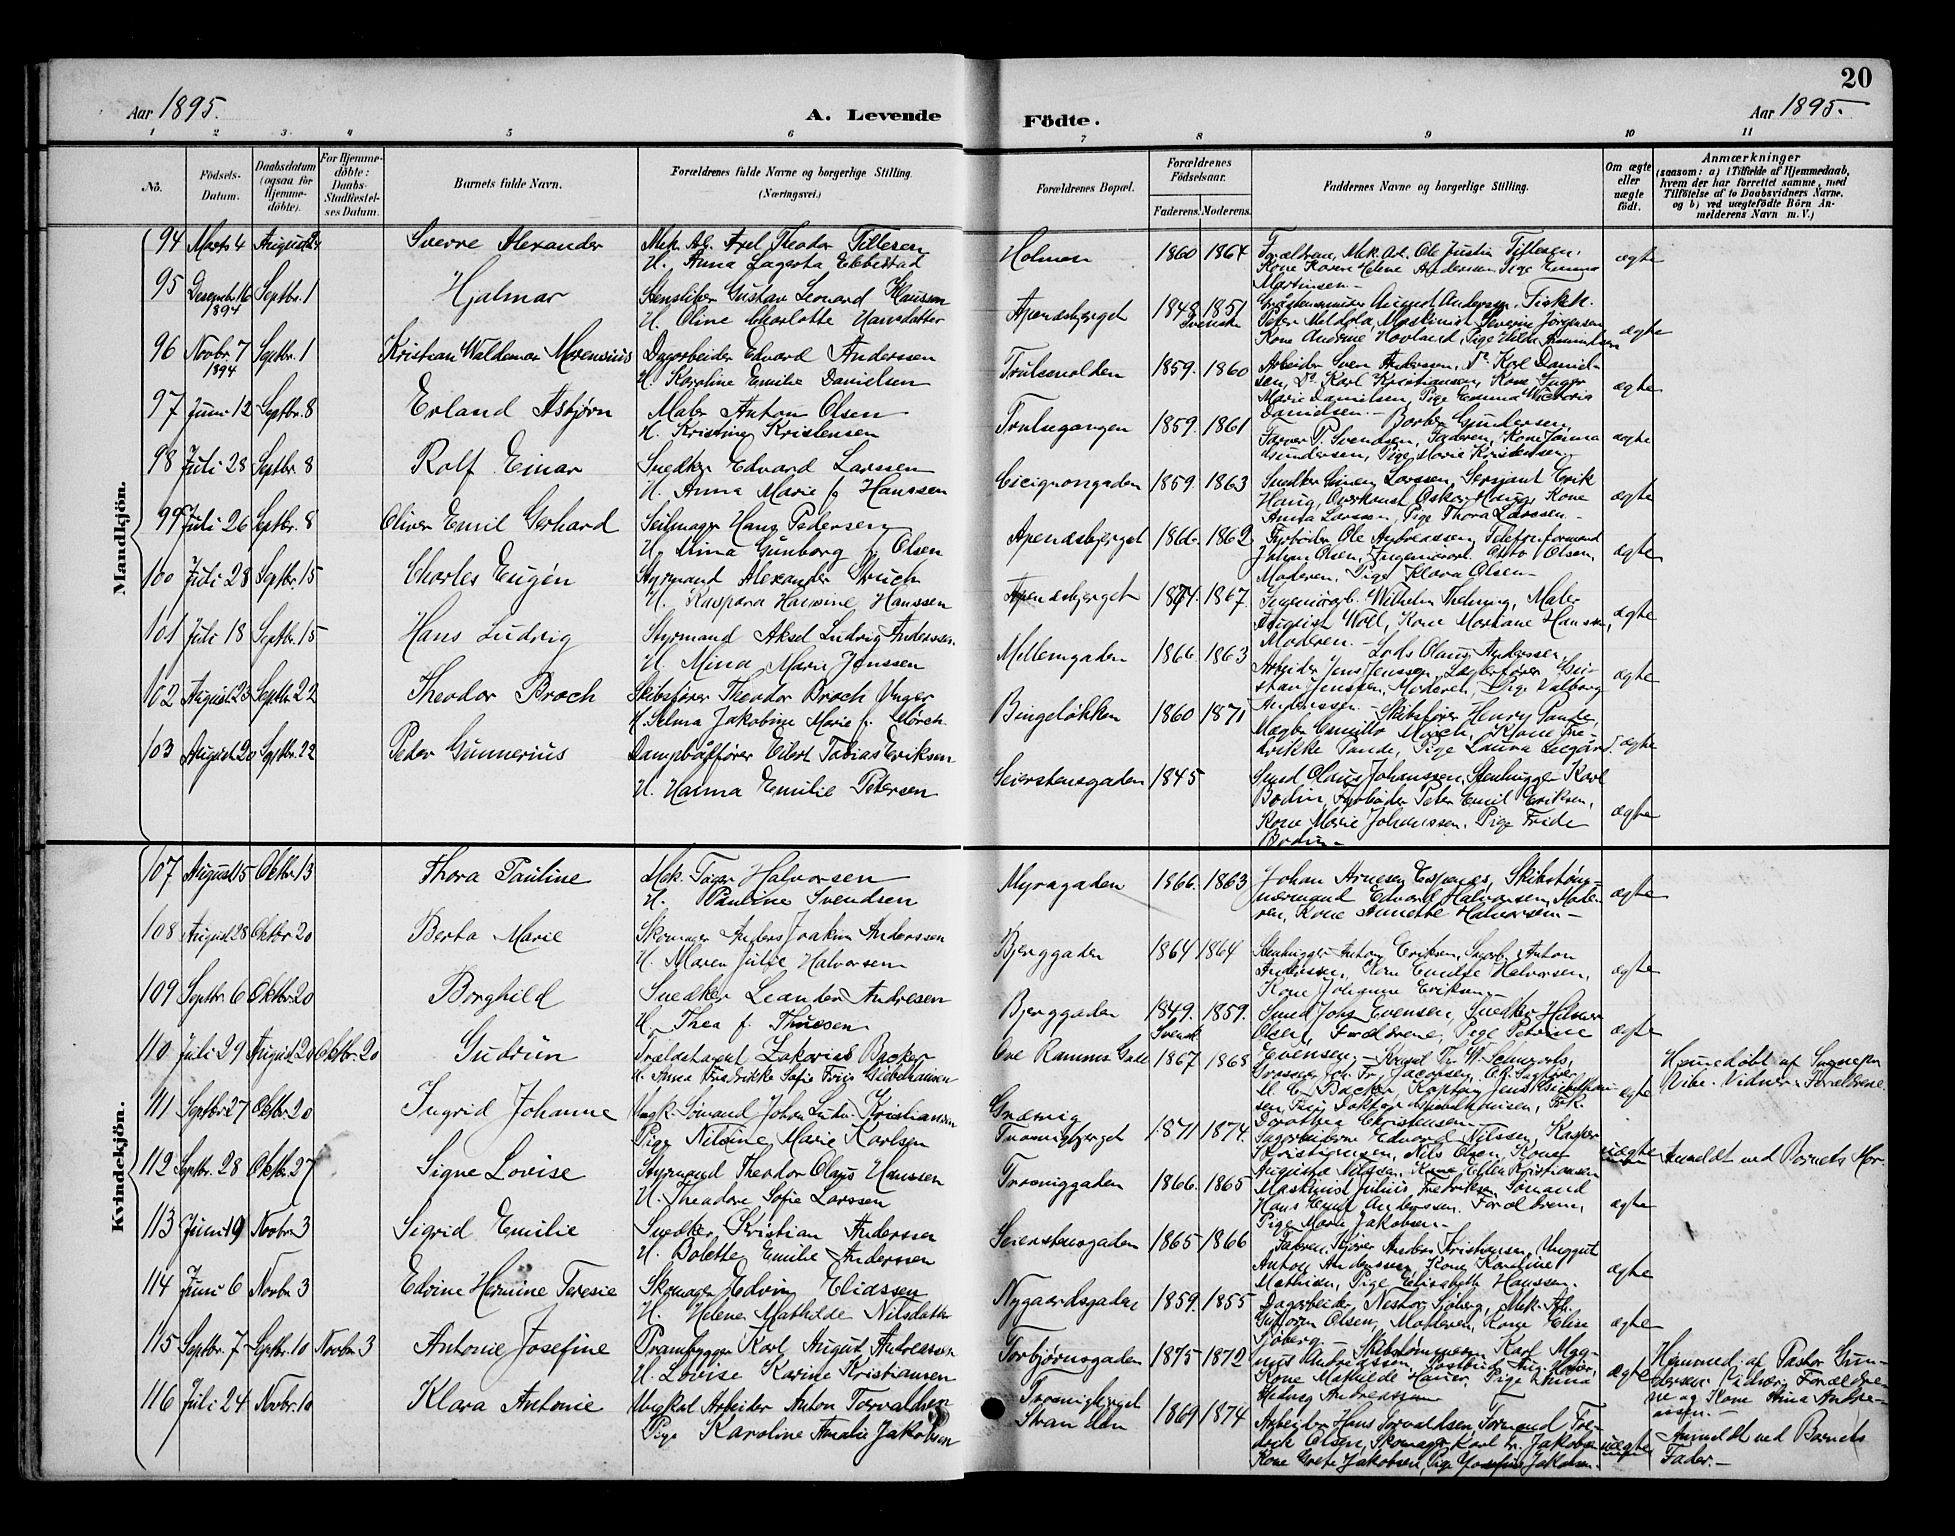 20
Aar 1895.
A. Levende
Födte.
Aar 1895.
1 2 3 4 5 6 7 8 9 10 11
No.
Födsels-
Datum.
Daabsdatum
(ogsaa for
Hjemme-
döbte).
For Hjemme-
döbte:
Daabs-
Stadfæstel-
ses Datum.
Barnets fulde Navn.
Forældrenes fulde Navne og borgerlige Stilling.
(Næringsvei.)
Forældrenes Bopæl.
Forældrenes
Födselsaar.
Faderens.
Moderens.
Faddernes Navne og borgerlige Stilling.
Om ægte
eller
uægte
födt.
Anmærkninger
(saasom: a) i Tilfælde af Hjemmedaab,
hvem der har forrettet samme, med
Tilföielse af to Daabsvidners Navne.
og b) ved uægtefödte Börn An-
melderens Navn m. V.)
Mandkjön.
94 Marts 4 August 24 Sverre Alexander Mek. Ab. Axel Theodor Tillesen
H. Anna Lagerta Ebbestad
Holmen 1860 1864 Forældrene, Mek. Ab. Ole Justin Tillesen,
Kone Karen Helene Andersen, Pige Emma
Martinsen.- ægte
95 Decembr. 16 1894 Septbr. 1 Hjalmar Stensliber Gustav Leonard Klausson
H. Oline Charlotte Hansdatter
Apenæsbjerget 1848 1851 Svenske August Andersen,
Peter Meldola, Maskinist Severin Jørgensen
Kone Andrine Hovland, Pige Hilda ægte
96 Novbr. 7 1894 Septbr. 1 Kristian Waldemar Morensius Dagarbeider Edvard Andersen
H. Karoline Emilie Danielsen
1859. 1860 Arbeider Sven Andersen, Do. Karl Daniel-
sen, Do. Karl Kristiansen, Kone Inger
Marie Danielsen, Pige Emma Victoria
Danielsen.- ægte
97 Juni 12 Septbr. 8 Erland Asbjørn Maler Anton Olsen
H. Kristine Kristensen
Trulsegangen 1859. 1861 Barber Gundersen,
Farver P. Svendsen, Faderen, Kone Janna
Gundersen, Pige Marie Kristensen ægte
98 Juli 28 Septbr. 8 Rolf Einar Snedker Edvard Larssen
H. Anna Marie f. Hanssen
Cicignongaden 1859. 1863 Snedker Larssen, Sersjant Erik
Haug, Overkonst. Oskar Haug, Kone
Anna Larssen, Pige Thora Larssen.- ægte
99 Juli 26 Septbr. 8 Oliver Emil Gerhard Seilmager Hans Pedersen
H. Mina Gunborg f. Olsen
Apenæsbjerget 1866. 1862 Fyrbøder Ole Andreassen, Telefonformand
Johan Olsen, Otto Olsen,
Moderen, Pige Klara Olsen.- ægte
100 Juli 28 Septbr. 15 Charles Eugén Styrmand Alexander Struch
H. Kaspara Hansine Hanssen
Apenæsbjerget 1874. 1867 Wilhelm Thelning, Maler
August Woll, Kone Hanssen,
Moderen.- ægte
101 Juli 18 Septbr. 15 Hans Ludvig Styrmand Aksel Ludvig Anderssen.
H. Mina Marie Jenssen
Mellemgaden 1866. 1863 Lods Olaus Anderssen,
Arbeider Jens Jenssen, Kri-
stian Jenssen, Moderen, Pige Valborg
Anderssen.- ægte
102 August 23 Septbr. 22 Theodor Broch Skibsfører Theodor Broch Unger
H. Selma Jakobine Marie f. Mørch.
Bingeløkken 1860 1871 Skibsfører Henry Pande,
Mægler Camillo Mørch, Kone Fre-
drikke Pande, Pige Laura ægte
103 August 20 Septbr. 22 Peder Gunnerius Dampbåtfører Eilert Tobias Eriksen
H. Hanna Emilie Petersen
Seierstensgaden 1845 Smed Olaus Johanssen, Stenhugger Karl
Bodin, Fyrbøder Peter Emil Eriksen,
Kone Marie Johanssen, Pige Frida
Bodin.- ægte
Kvindekjön.
107 August 15 Oktbr. 13 Thora Pauline Mek. Halvorsen
H. Pauline Svendsen
Myragaden 1866. 1863 Johan Arnesen Espenes, Skibstøm-
mermand Edvard Halvorsen, Mode-
ren, Kone Annette Halvorsen.- ægte
108 August 28 Oktbr. 20 Berta Marie Skomager Anders Joakim Anderssen
H. Maren Julie Halvorsen
Bjerggaden 1864 1864 Stenhugger Anton Eriksen, Anton
Anderssen, Kone Emilie Halvorsen,
Kone Johanne Eriksen.- ægte
109 Septbr. 6 Oktbr. 20 Borghild Snedker Leander Andresen
H. Thea f. Thuesen
Bjerggaden 1849. 1859. Svensk Smed Johs Evensen, Snedker Hilmer
Olsen, Forældrene, Pige Petrine
Evensen.- ægte
110 Juli 29 August 20 Oktbr. 20 Gudrun Trælastagent Zakarias Backer
H. Anna Fredrikke Sofie Friis Giebelhausen
Ove Ramms Gade 1867 1868 Konsul Th. W. Schwartz,
Grosserer Joh. Fr. Jacobsen, O.R. Sagfører
M. C. Backer, Kaptein Jens Giebelhau-
sen, Fru Doktor Giebelhausen, Frk.
Dorothea Christensen.- ægte Hjemmedøbt af Sognepr.
Vibe. Vidner: Forældrene
111 Septbr. 27 Oktbr. 20 Ingrid Johanne Ungk. Sømand Johan Ludv. Kristiansen
Pige Nilsine Marie Karlsen
Græsvig
Trosvigbjerget 1871 1874. Sagarbeiderne Edvard Nilssen, Kasper
Kristiansen, Nils Olsen, Kone
Augusta Nilssen, Kone Ellen Kristiansen uægte Anmeldt ved Barnets Mor.
112 Septbr. 28 Oktbr. 27 Signe Lovise Styrmand Theodor Olaus Hanssen
H. Theodora Sofie Larssen
Trosviggaden 1866. 1865 Maskinist Julius Fredriksen, Sømand
Hans Emil Anderssen, Forældrene,
Pige Marie Jakobsen.- ægte
113 Juni 19 Novbr. 3 Sigrid Emilie Snedker Kristian Anderssen
H. Bolette Emilie Anderssen
Seierstensgaden 1865 1866 Faderen, Kjører Anders Kristiansen, Unggut
Anton Anderssen, Kone Karoline
Mathisen, Pige Elisabeth Hanssen. ægte
114 Juni 6 Novbr. 3 Edvine Hermine Teresie Skomager Edvin Eliassen
H. Helene Mathilde Nilsdatter
Nygaardsgaden 1859. 1855 Dagarbeider Nestor Sjøberg, Mek. Ab.
Guttorm Olsen, Moderen, Kone Elise
Sjøberg.- ægte
115 Septbr. 7 Septbr. 10 Novbr. 3 Antonie Josefine Prambygger Karl August Andreassen
H. Lovise Karine Kristiansen
Torbjørnsgaden 1875 1872 Skibstømmerm. Karl Mag-
nus Andreassen, Postbud Aug. Hauer,
Kone Mathilde Hauer, Pige Anna
Hedvig Andreassen ægte Hjemmed. af Pastor Gun-
dersen. Vidner: Forældre-
ne og Kone Anna Andre-
assen.-
116 Juli 24 Novbr. 10 Klara Antonie Ungkarl Arbeider Anton Torvaldsen
Pige Karoline Amalie Jakobsen
Trosvigbjerget
Stranden 1869 1874 Arbeider Hans Torvaldsen, Formand Fre-
drik Olsen, Skomager Karl L. Jakobsen
Kone Grete Jakobsen, Pige Josefine Jakobsen.- uægte Anmeldt ved Barnets
Fader.-